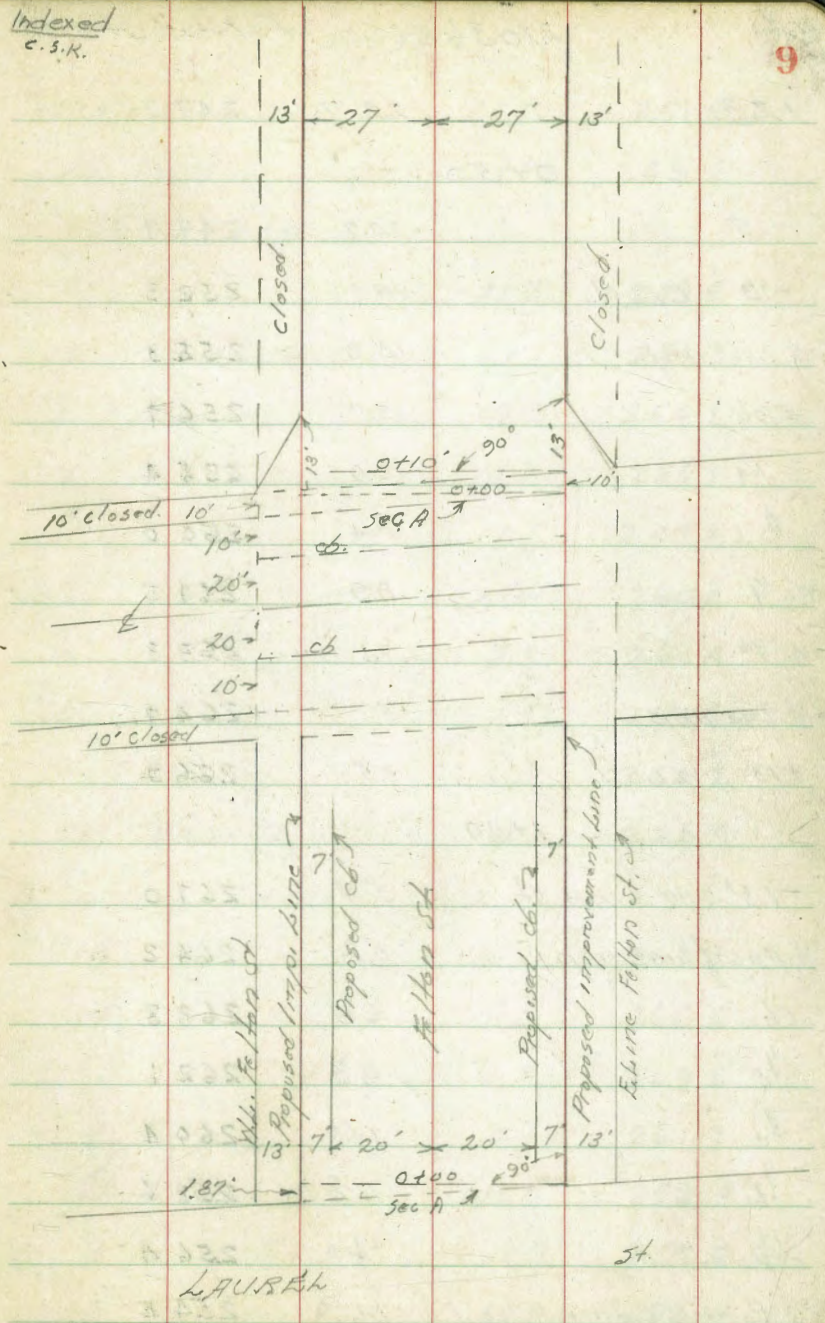 Indexed
C.S.K.
9
13' 27' 27' 13'
Closed.
Closed.
13'
13'
0+10'
90°
0+00
10'
10' Closed. 10'
Sec. A
10'
cb.
20'
℄
20
cb
10'
10' Closed
7'
7'
W.L. Felton St
Proposed Impr. Line
Proposed cb.
Felton St
Proposed cb.
Proposed improvement Line
E. Line Felton St.
13' 7' 20' 20' 7' 13'
90°
1.87'
0+00
Sec A
LAUREL
St.